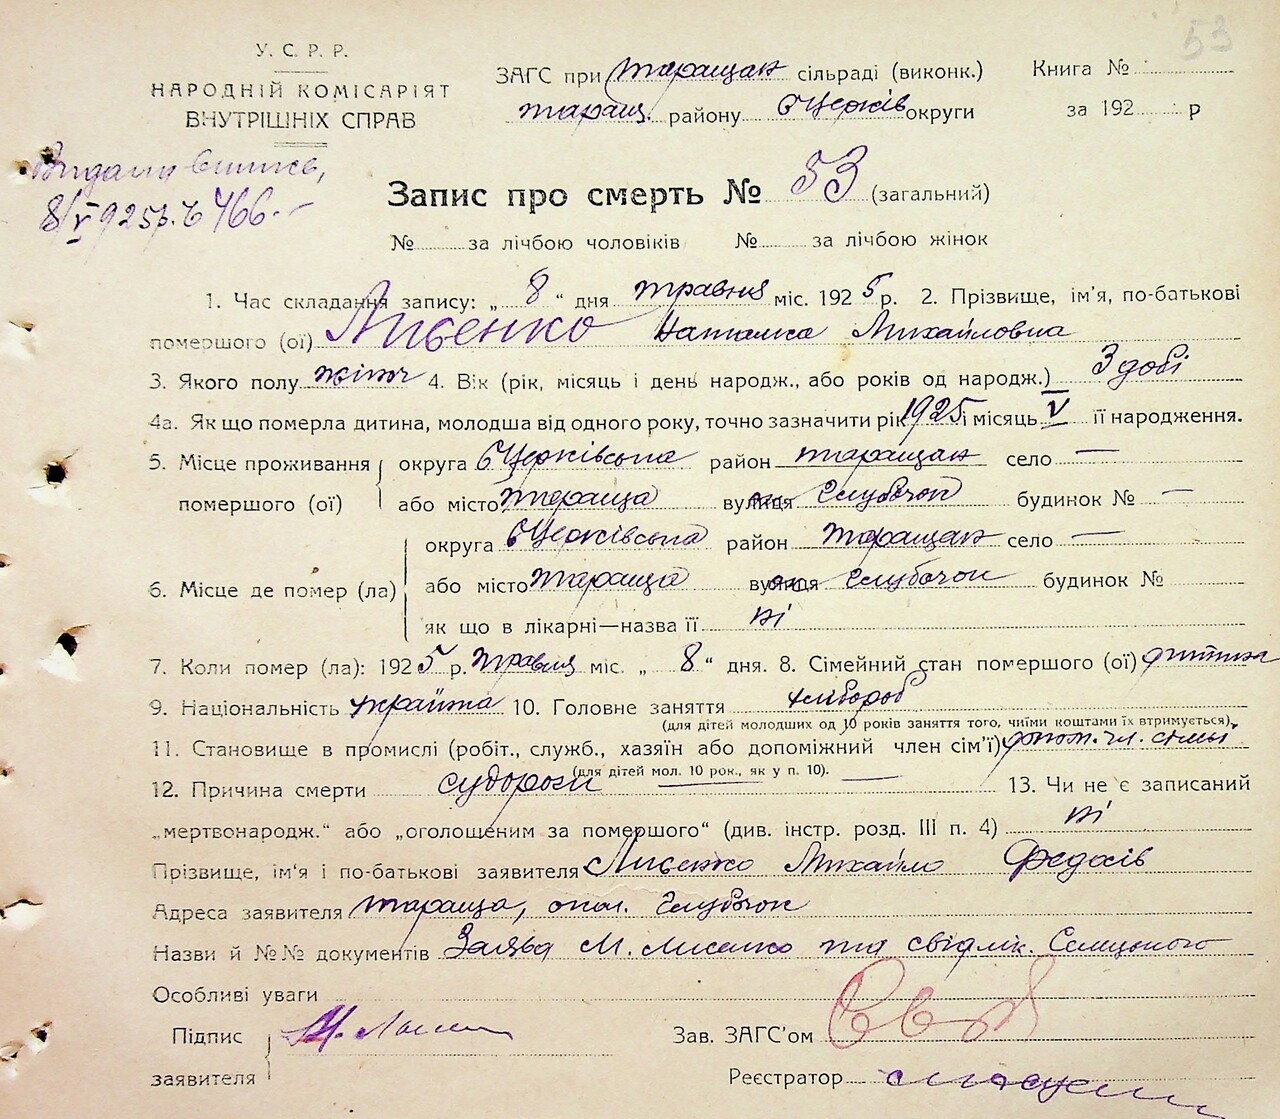 53
У. С. Р. Р.
НАРОДНІЙ КОМІСАРІЯТ
ВНУТРІШНІХ СПРАВ
ЗАГС при Таращан сільраді (виконк.)
Таращ. району БЦерків округи
Книга №
за 192 р
8/V 925р. № 466.
Запис про смерть № 53 (загальний)
№ за лічбою чоловіків № за лічбою жінок
1. Час складання запису: „ 8 “ дня травня міс. 1925 р. 2. Прізвище, ім'я, по-батькові
помершого (ої) Лисенко Наталка Михайловна
3. Якого полу жіноч 4. Вік (рік, місяць і день народж., або років од народж.) 3 добі
4а. Як що померла дитина, молодша від одного року, точно зазначити рік 1925 і місяць V її народження.
5. Місце проживання помершого (ої) округа БЦерківська район Таращан село —
або місто Тараща вулиця Глубочок будинок № —
6. Місце де помер (ла) округа БЦерківська район Таращан село —
або місто Тараща вулиця Глубочок будинок №
як що в лікарні—назва її ні
7. Коли помер (ла): 1925 р. травня міс. „ 8 “ дня. 8. Сімейний стан помершого (ої) дитина
9. Національність україн 10. Головне заняття хлібороб
(для дітей молодших од 10 років заняття того, чиїми коштами їх втримується).
11. Становище в промислі (робіт., служб., хазяїн або допоміжний член сім'ї) допом. чл. сімьі
(для дітей мол. 10 рок., як у п. 10).
12. Причина смерти судороги — 13. Чи не є записаний
„мертвонародж.“ або „оголошеним за помершого“ (див. інстр. розд. III п. 4) ні
Прізвище, ім'я і по-батькові заявителя Лисенко Михайло Федосів
Адреса заявителя Тараща, окол. Глубочок
Назви й №№ документів Заява М. Лисенко та свідчік.
Особливі уваги
Підпис заявителя М. Лисен
Зав. ЗАГС'ом
Реєстратор